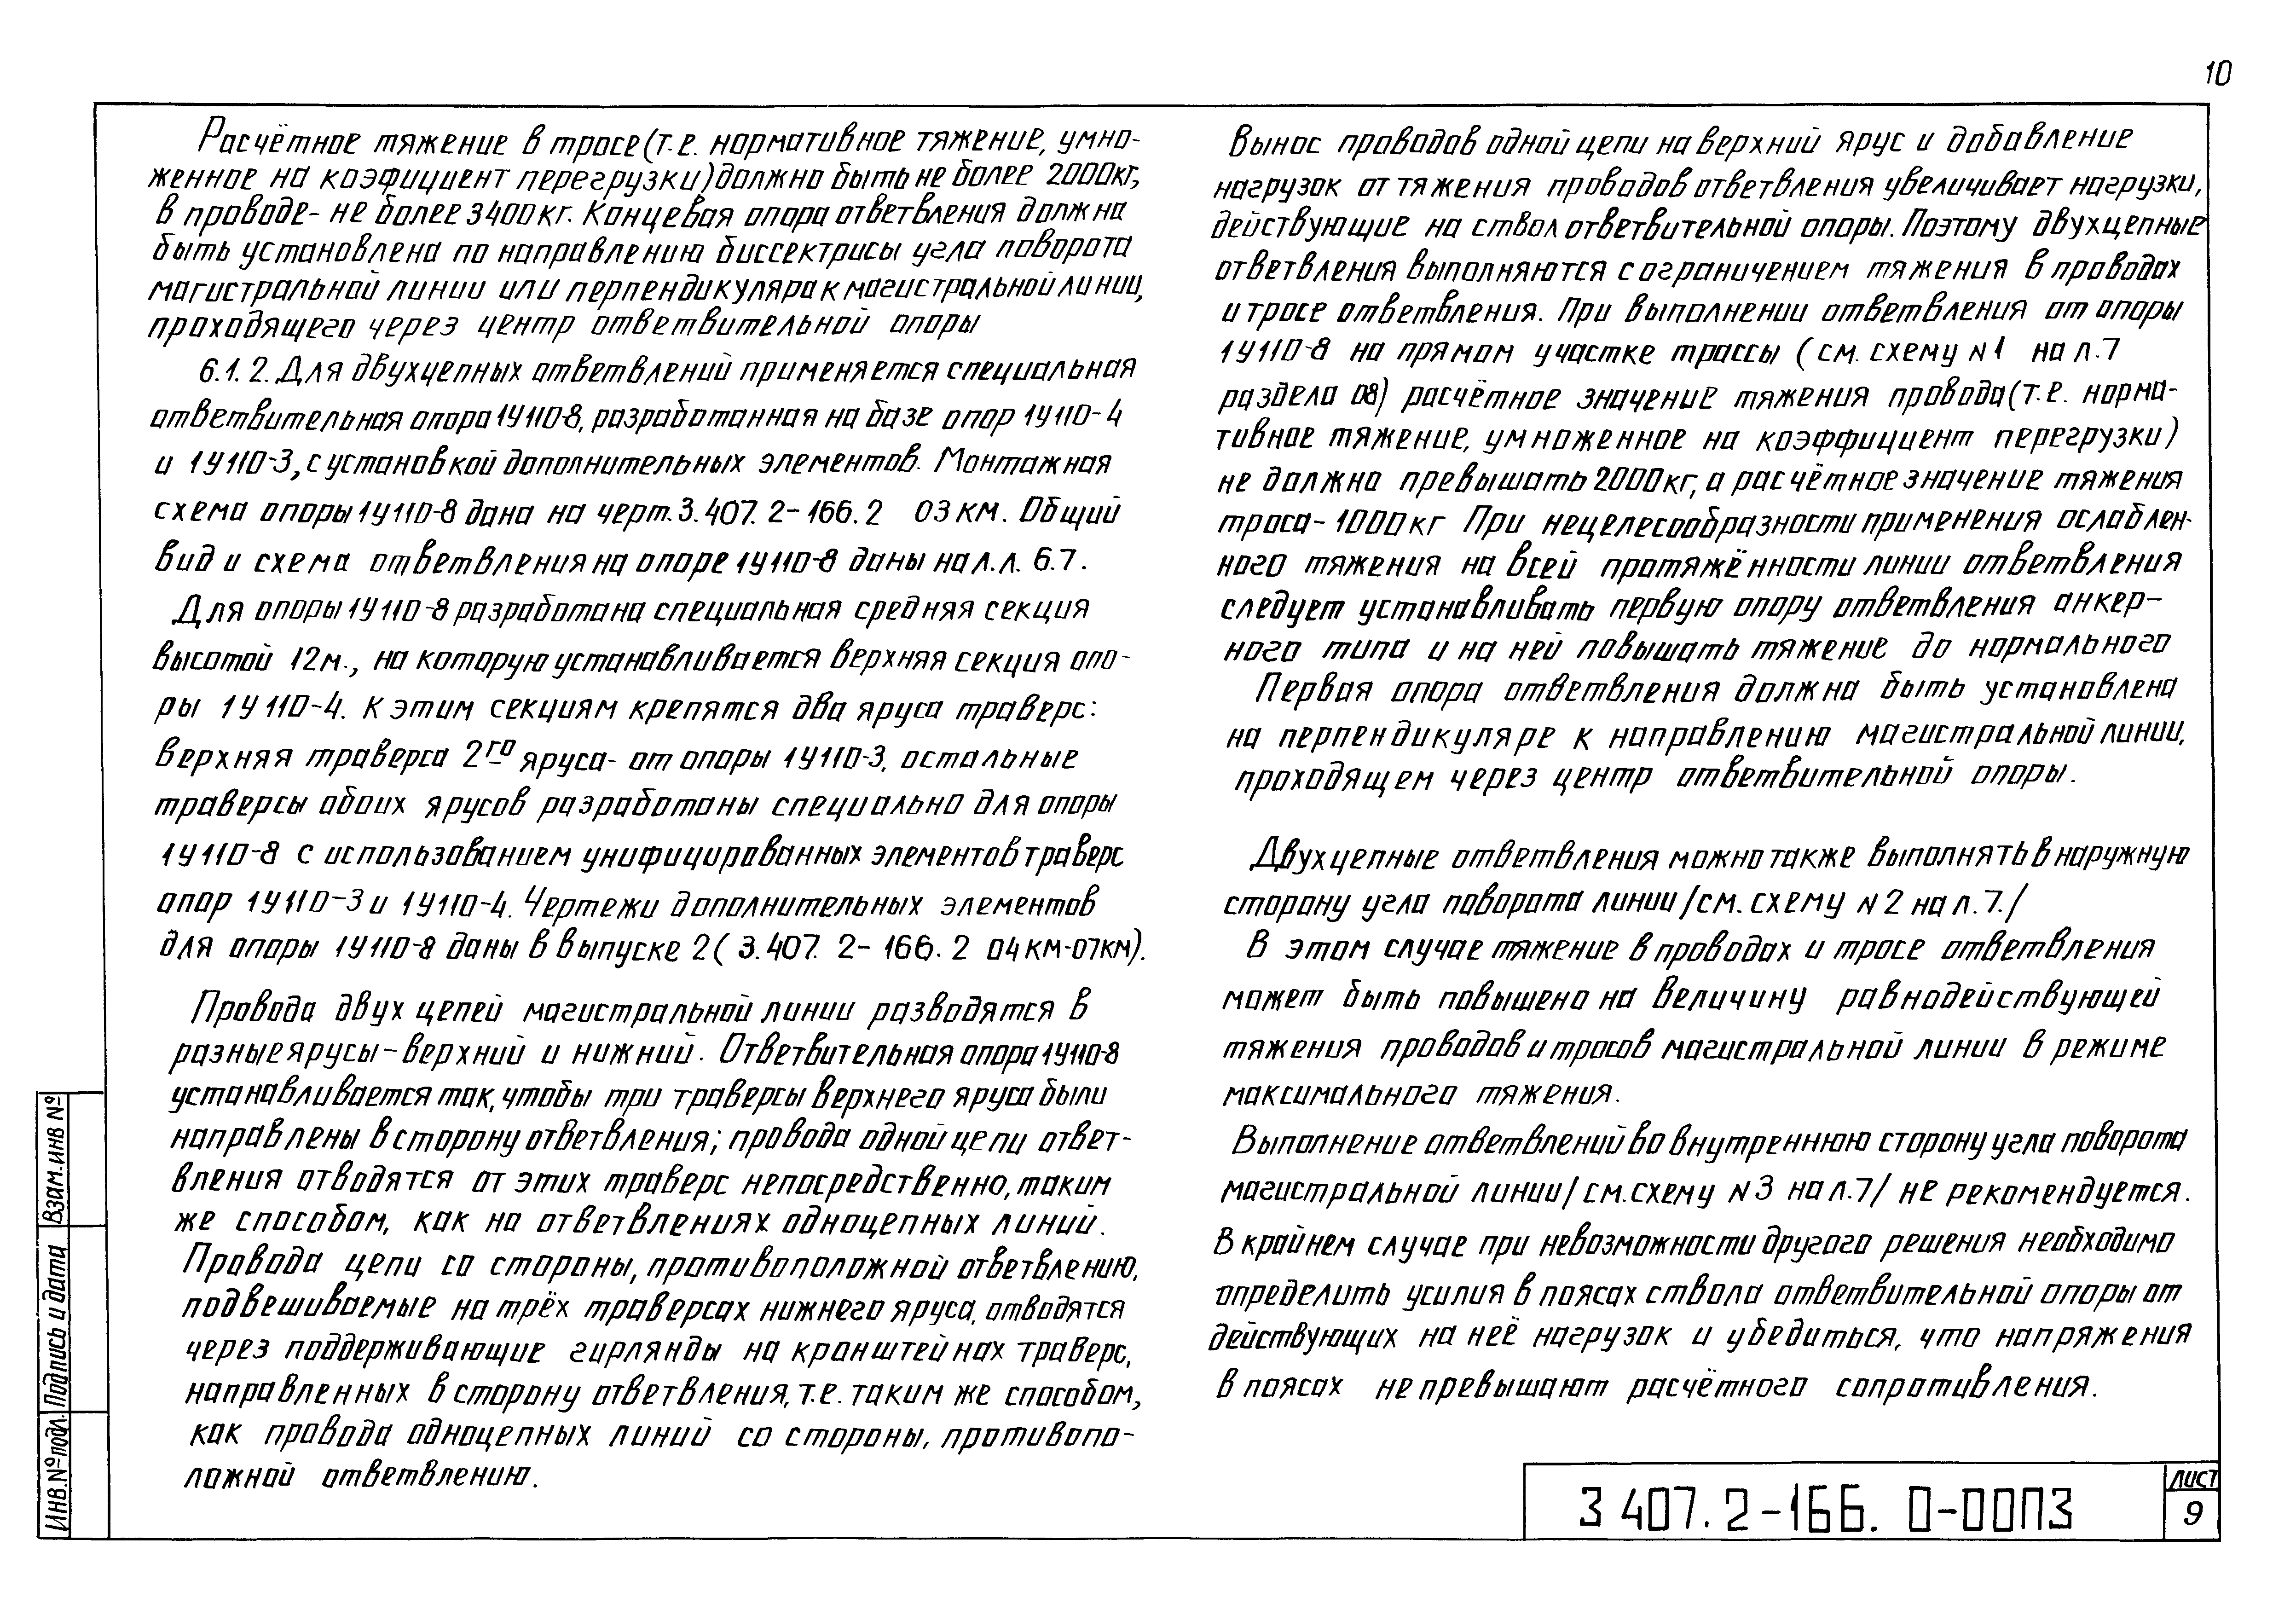 10
Расчётное тяжение в тросе (т.е. нормативное тяжение, умно-
женное на коэфициент перегрузки) должно быть не более 2000кг,
в проводе- не более 3400кг. Концевая опора ответвления должна
быть установлена по направлению биссектрисы угла поворота
магистральной линии или перпендикуляра к магистральной линии,
проходящего через центр ответвительной опоры
6.1.2. Для двухцепных ответвлений применяется специальная
ответвительная опора 1У110-8, разработанная на базе опор 1У110-4
и 1У110-3, с установкой дополнительных элементов. Монтажная
схема опоры 1У110-8 дана на черт. 3.407.2-166.2 03 КМ. Общий
вид и схема ответвления на опоре 1У110-8 даны на л.л. 6.7.
Для опоры 1У110-8 разработана специальная средняя секция
высотой 12м., на которую устанавливается верхняя секция опо-
ры 1У110-4. К этим секциям крепятся два яруса траверс:
верхняя траверса 2го яруса- от опоры 1У110-3, остальные
траверсы обоих ярусов разработаны специально для опоры
1У110-8 с использованием унифицированных элементов траверс
опор 1У110-3 и 1У110-4. Чертежи дополнительных элементов
для опоры 1У110-8 даны в выпуске 2 ( 3.407.2-166.2 04КМ-07КМ).
Провода двух цепей магистральной линии разводятся в
разные ярусы-верхний и нижний. Ответвительная опора 1У110-8
устанавливается так, чтобы три траверсы верхнего яруса были
направлены в сторону ответвления; провода одной цепи ответ-
вления отводятся от этих траверс непосредственно, таким
же способом, как на ответвлениях одноцепных линий.
Провода цепи со стороны, противоположной ответвлению,
подвешиваемые на трёх траверсах нижнего яруса, отводятся
через поддерживающие гирлянды на кранштейнах траверс,
направленных в сторону ответвления, т.е. таким же способом,
как провода одноцепных линий со стороны, противопо-
ложной ответвлению.
Вынос проводов одной цепи на верхний ярус и добавление
нагрузок от тяжения проводов ответвления увеличивает нагрузки,
действующие на ствол ответвительной опоры. Поэтому двухцепные
ответвления выполняются с ограничением тяжения в проводах
и тросе ответвления. При выполнении ответвления от опоры
1У110-8 на прямом участке трассы (см. схему N1 на л.7
раздела 08) расчётное значение тяжения провода (т.е. норма-
тивное тяжение, умноженное на коэффициент перегрузки)
не должно превышать 2000кг, а расчётное значение тяжения
троса-1000кг При нецелесообразности применения ослаблен-
ного тяжения на всей протяжённости линии ответвления
следует устанавливать первую опору ответвления анкер-
ного типа и на ней повышать тяжение до нормального
Первая опора ответвления должна быть установлена
на перпендикуляре к направлению магистральной линии,
проходящем через центр ответвительной опоры.
Двухцепные ответвления можно также выполнять в наружную
сторону угла поворота линии /см. схему N2 на л.7./
В этом случае тяжение в проводах и тросе ответвления
может быть повышено на величину равнодействующей
тяжения проводов и тросов магистральной линии в режиме
максимального тяжения.
Выполнение ответвлений во внутреннюю сторону угла поворота
магистральной линии/ см.схему N3 на л.7/ не рекомендуется.
В крайнем случае при невозможности другого решения необходимо
определить усилия в поясах ствола ответвительной опоры от
действующих на неё нагрузок и убедиться, что напряжения
в поясах не превышают расчётного сопротивления.
Взам.инв №
Подпись и дата
Инв.№подл.
3 407.2-166. 0-00ПЗ
лист
9